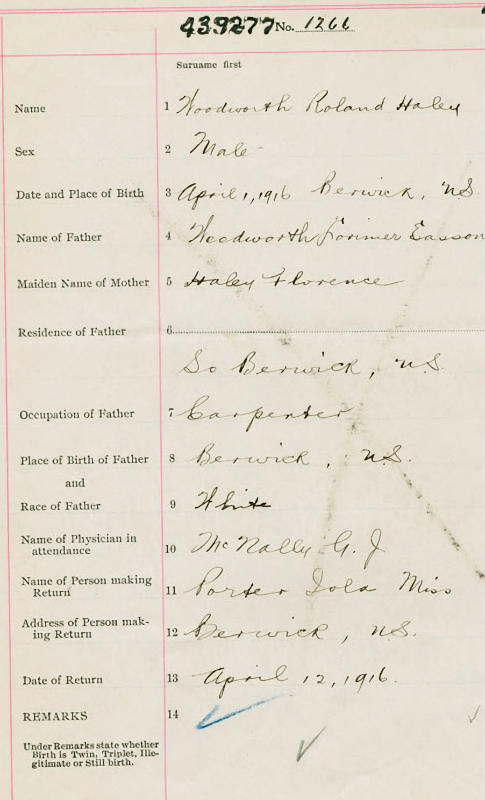 439277 No. 1266
Surname first
Name 1 Woodworth Roland Haley
Sex 2 Male
Date and Place of Birth 3 April 1, 1916 Berwick, N.S.
Name of Father 4 Woodworth Lorimer Easson
Maiden Name of Mother 5 Haley Florence
Residence of Father 6
So Berwick, N.S.
Occupation of Father 7 Carpenter
Place of Birth of Father 8 Berwick, N.S.
and
Race of Father 9 White
Name of Physician in
attendance 10 McNally G. J
Name of Person making
Return 11 Porter Iola Miss
Address of Person mak-
ing Return 12 Berwick, N.S.
Date of Return 13 April 12, 1916.
REMARKS 14
Under Remarks state whether
Birth is Twin, Triplet, Ille-
gitimate or Still birth.